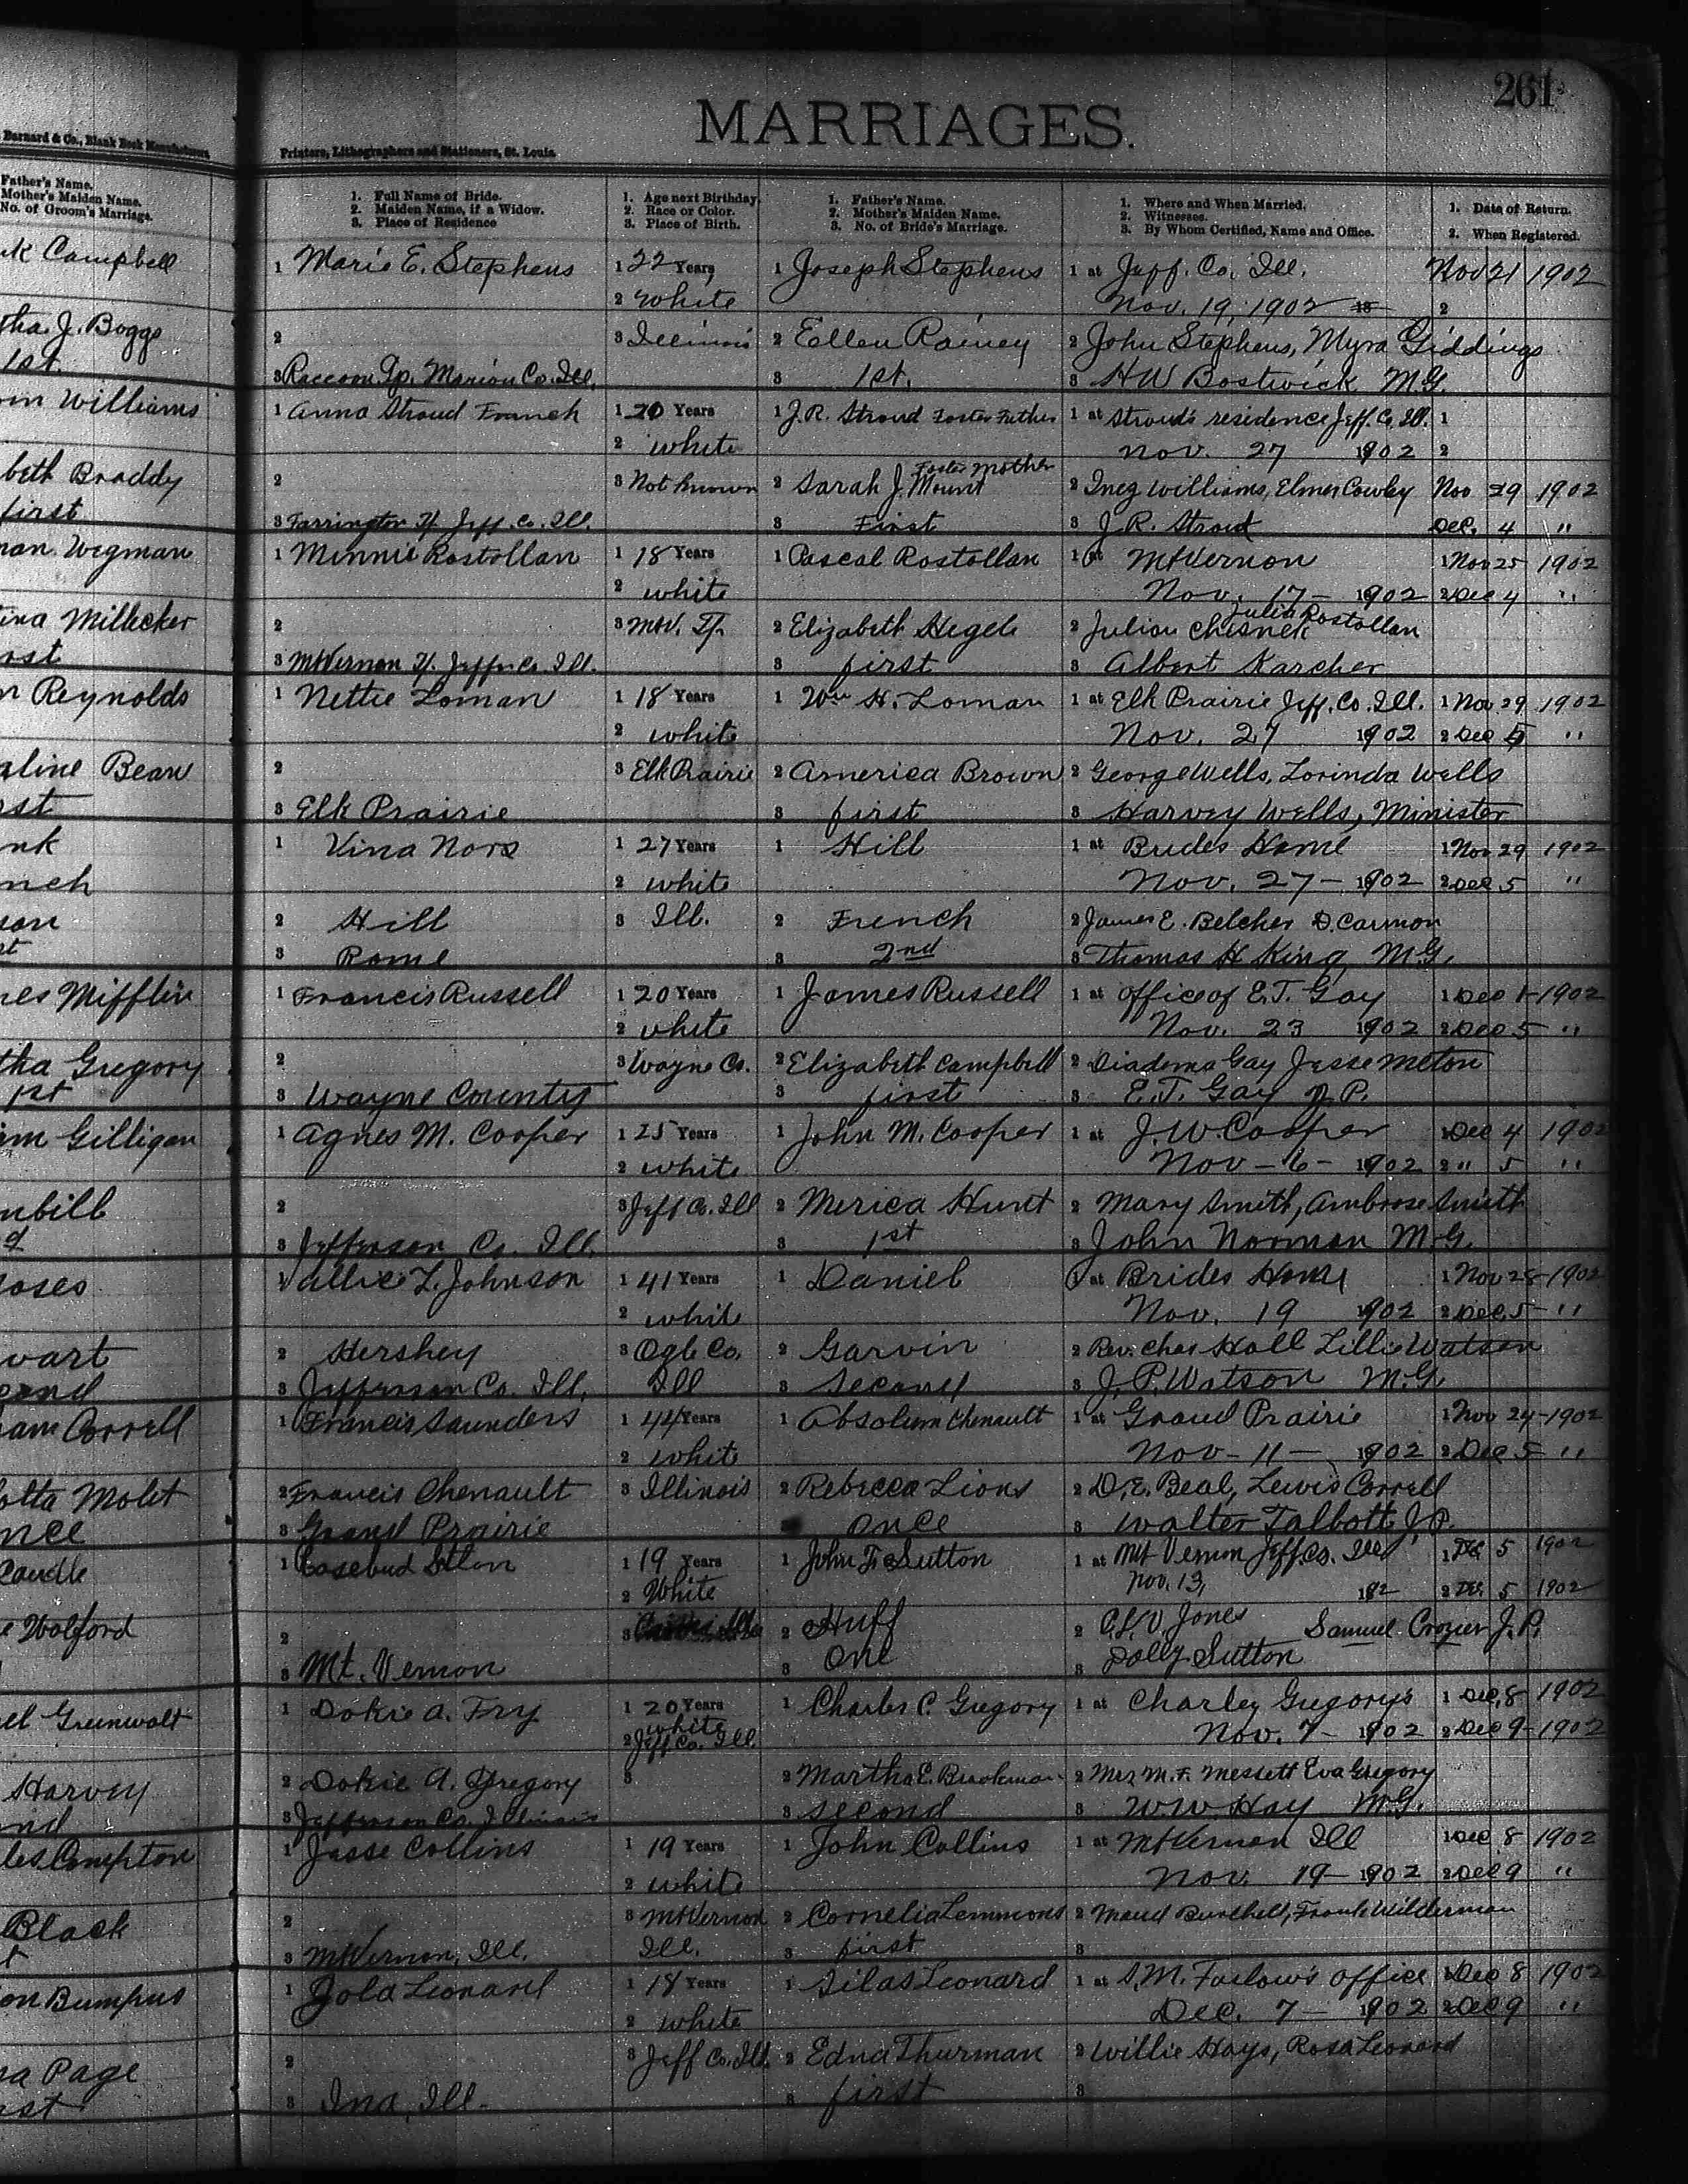 261
MARRIAGES.
Barnard & Co., Blank Book Manufacturers,
Printers, Lithographers and Stationers, St. Louis.
Father's Name.
Mother's Maiden Name.
No. of Groom's Marriage.
1. Full Name of Bride.
2. Maiden Name, if a Widow.
3. Place of Residence
1. Age next Birthday.
2. Race or Color.
3. Place of Birth.
1. Father's Name.
2. Mother's Maiden Name.
3. No. of Bride's Marriage.
1. Where and When Married.
2. Witnesses.
3. By Whom Certified, Name and Office.
1. Date of Return.
2. When Registered.
Campbell 1 Marie E. Stephens 1 22 Years 1 Joseph Stephens 1 at Jeff. Co. Ill. Nov 21 1902
2 White Nov. 19, 1902 18 2
tha J. Boggs 2 3 Illinois 2 Ellen Rainey 2 John Stephens, Myra Giddings
1st. 3 Raccoon Tp. Marion Co. Ill. 3 1st. 3 H W Bostwick M.G.
Williams 1 Anna Stroud French 1 20 Years 1 J.R. Stroud Foster Father 1 at Stroud's residence Jeff. Co. Ill. 1
2 white Nov. 27 1902 2
beth Braddy 2 3 Not known 2 Sarah J. Mount Foster Mother 2 Inez Williams, Elmer Cowley Nov 29 1902
first 3 Farrington Tp. Jeff. Co. Ill. 3 First 3 J. R. Stroud Dec. 4 "
man Wegman 1 Minnie Rostollan 1 18 Years 1 Pascal Rostollan 1 at Mt Vernon 1 Nov 25 1902
2 white Nov. 17 - 1902 2 Dec 4 "
ina Millecker 2 3 Mt V. Tp. 2 Elizabeth Hegele 2 Julian Chesnek Julia Rostollan
rst 3 Mt Vernon Tp. Jeff. Co Ill. 3 first 3 Albert Karcher
n Reynolds 1 Nettie Loman 1 18 Years 1 Wm H. Loman 1 at Elk Prairie Jeff. Co. Ill. 1 Nov 29 1902
2 white Nov. 27 1902 2 Dec 5 "
aline Bean 2 3 Elk Prairie 2 America Brown 2 George Wells, Lorinda Wells
st 3 Elk Prairie 3 first 3 Harvey Wells, Minister
nk 1 Vina Nors 1 27 Years 1 Hill 1 at Brides Home 1 Nov 29 1902
nch 2 white Nov. 27 - 1902 2 Dec 5 "
2 Hill 3 Ill. 2 French 2 James E. Belcher D. Carmon
3 Rome 3 2nd 3 Thomas H King M.G.
es Mifflin 1 Francis Russell 1 20 Years 1 James Russell 1 at office of E.T. Gay 1 Dec 1 - 1902
2 white Nov. 23 1902 2 Dec 5 "
tha Gregory 2 3 Wayne Co. 2 Elizabeth Campbell 2 Diadema Gay Jesse Melton
1st 3 Wayne County 3 first 3 E.T. Gay J.P.
am Gilligan 1 Agnes M. Cooper 1 25 Years 1 John M. Cooper 1 at J. W. Cooper 1 Dec 4 1902
2 white Nov - 6 - 1902 2 " 5 "
nbill 2 3 Jeff Co. Ill 2 Merica Hunt 2 Mary Smith, Ambrose Smith
d 3 Jefferson Co. Ill. 3 1st 3 John Norman M.G.
oses 1 Allie L. Johnson 1 41 Years 1 Daniel 1 at Brides Home 1 Nov 28 - 1902
2 white Nov. 19 1902 2 Dec. 5 - "
wart 2 Hershey 3 Ogle Co. 2 Garvin 2 Rev. Chas Hall Lillie Watson
cond 3 Jefferson Co. Ill. Ill 3 Second 3 J. P. Watson M.G.
iam Correll 1 Francis Saunders 1 44 Years 1 Absolum Chenault 1 at Grand Prairie 1 Nov 24 - 1902
2 white Nov - 11 - 1902 2 Dec 5 "
otta Molet 2 Francis Chenault 3 Illinois 2 Rebecca Lions 2 D. E. Beal, Lewis Correll
nce 3 Grand Prairie once 3 Walter Talbott J.P.
Caudle 1 Rosebud 1 19 Years 1 John T. Sutton 1 at Mt Vernon Jeff Co. Ill 1 Dec 5 1902
2 White Nov. 13, 2 Dec. 5 1902
Wolford 2 3 2 Huff 2 C.L.V. Jones Samuel Crozier J.P.
3 Mt. Vernon 3 One 3 Dolly Sutton
el Greenwalt 1 Dokie A. Fry 1 20 Years 1 Charles C. Gregory 1 at Charley Gregory's 1 Dec. 8 1902
white
2 Jeff Co. Ill. Nov. 7 - 1902 2 Dec 9 - 1902
Harvey 2 Dokie A. Gregory 3 2 Martha E. 2 Mrs M. F. Messett Eva Gregory
nd 3 Jefferson Co. Illinois 3 second 3 W W Hay M.G.
les Compton 1 Jesse Collins 1 19 Years 1 John Collins 1 at Mt Vernon Ill 1 Dec 8 1902
2 white Nov. 19 - 1902 2 Dec 9 "
Black 2 3 Mt Vernon 2 Cornelia Lemmons 2 Maud Burthell, Frank Wilderman
t 3 Mt Vernon, Ill. Ill. 3 first 3
on Bumpus 1 Zola Leonard 1 18 Years 1 Silas Leonard 1 at S.M. Farlow's office 1 Dec 8 1902
2 white Dec. 7 - 1902 2 Dec 9 "
a Page 2 3 Jeff Co. Ill. 2 Edna Thurman 2 Willie Hays, Rosa Leonard
st 3 Ina, Ill. 3 first 3